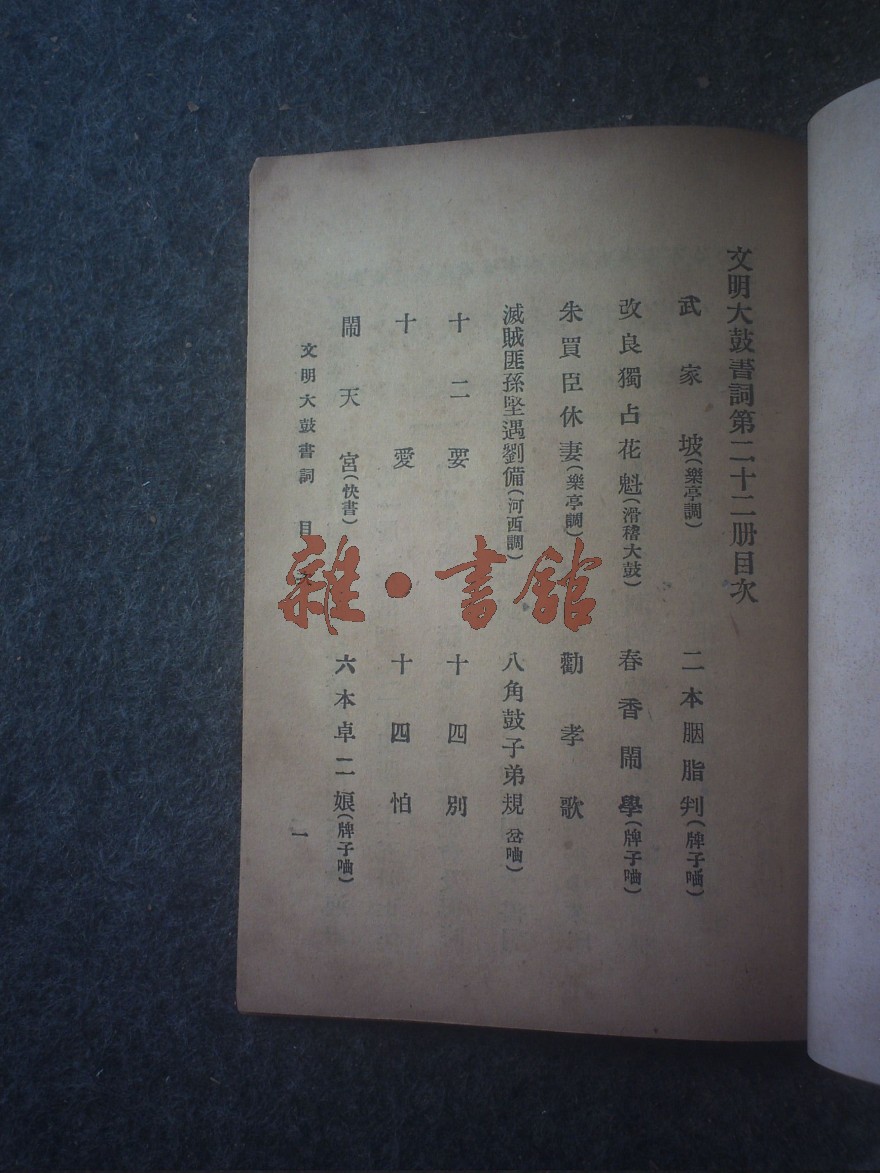 文明大鼓書詞第二十二册目次
武家坡(樂亭調)
二本胭脂判(牌子曲)
改良獨占花魁(滑稽大鼓)
春香鬧學(牌子曲)
朱買臣休妻(樂亭調)
勸孝歌
滅賊匪孫堅遇劉備(河西調)
八角鼓子弟規 岔曲)
十二要
十四別
十愛
十四怕
鬧天宮(快書)
六本卓二娘(牌子曲)
文明大鼓書詞 目
一
雜·書館